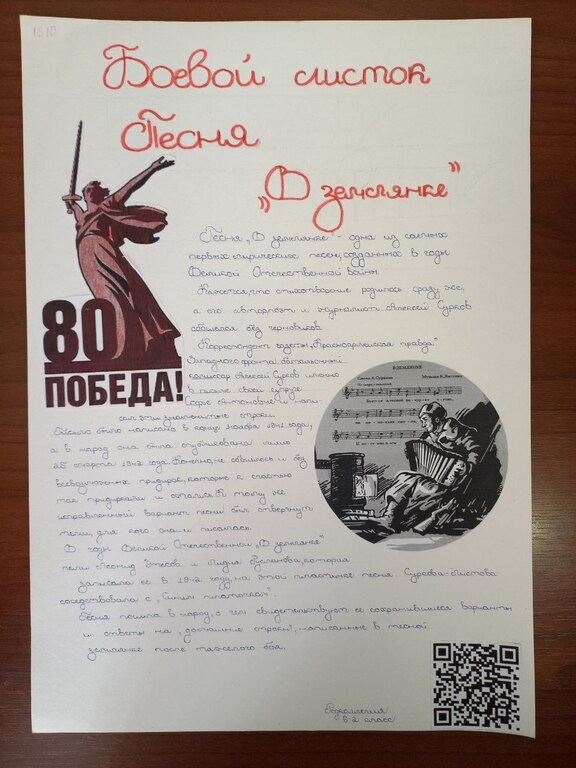 Боевой листок
Песня
„В землянке"
Песня „В землянке" - одна из самых
первых лирических песен, созданных в годы
Великой Отечественной войны.
Кажется, что стихотворение родилось сразу же,
а его автор поэт и журналист Алексей Сурков
обошелся без черновиков.
Корреспондент газеты „Красноармейская правда"
Западного фронта батальонный
комиссар Алексей Сурков именно
в письме своей супруге
Софье Антоновне и напи-
сал эти знаменитые строки.
80
ПОБЕДА!
Письмо было написано в конце ноября 1941 года,
а в народ она была опубликована лишь
25 марта 1942 года. Конечно, не обошлось и без
всевдумчивых придирок, которые к счастью
так придирками и остались. К тому же
исправленный вариант песни был отвергнут
теми, для кого она и писалась.
В годы Великой Отечественной „В землянке"
пели Леонид Утесов и Лидия Русланова, которая
записала ее в 1942 году, на этой пластинке песня Суркова-Листова
соседствовала с „Синим платочком".
Песня пошла в народ, о чем свидетельствуют ее сохранившиеся варианты
и ответы на „домашние строки", написанные в тесной
землянке после тяжелого боя.
В ЗЕМЛЯНКЕ
Слова А. Суркова
Музыка К. Листова
Редколлегия
6-2 класс